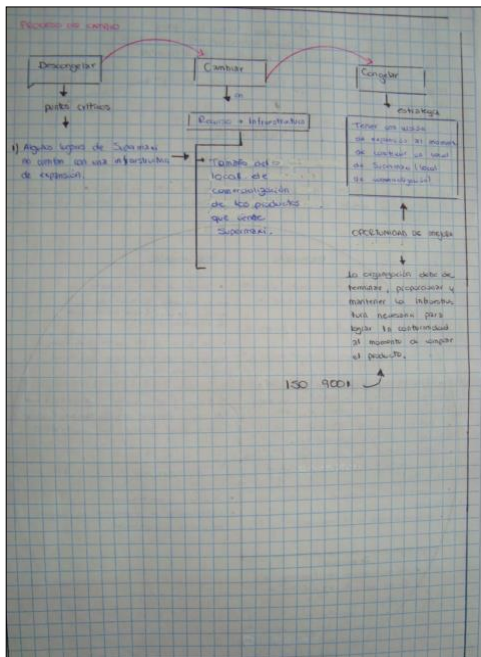 PROCESO DE CAMBIO
Descongelar
puntos críticos
1) Algunos lugares de Supermaxi
no cuentan con una infraestructura
de expansión.
Cambiar
en
Recurso = Infraestructura
Tamaño del
local de
comercialización
de los productos
que vende
Supermaxi.
Congelar
estrategia
Tener una
de expansión al momento
de construir un local
de Supermaxi (local
de comercialización)
OPORTUNIDAD DE mejora
La organización debe de
terminar, proporcionar y
mantener la infraestruc
tura necesaria para
lograr la conformidad
al momento de
el producto.
ISO 9001